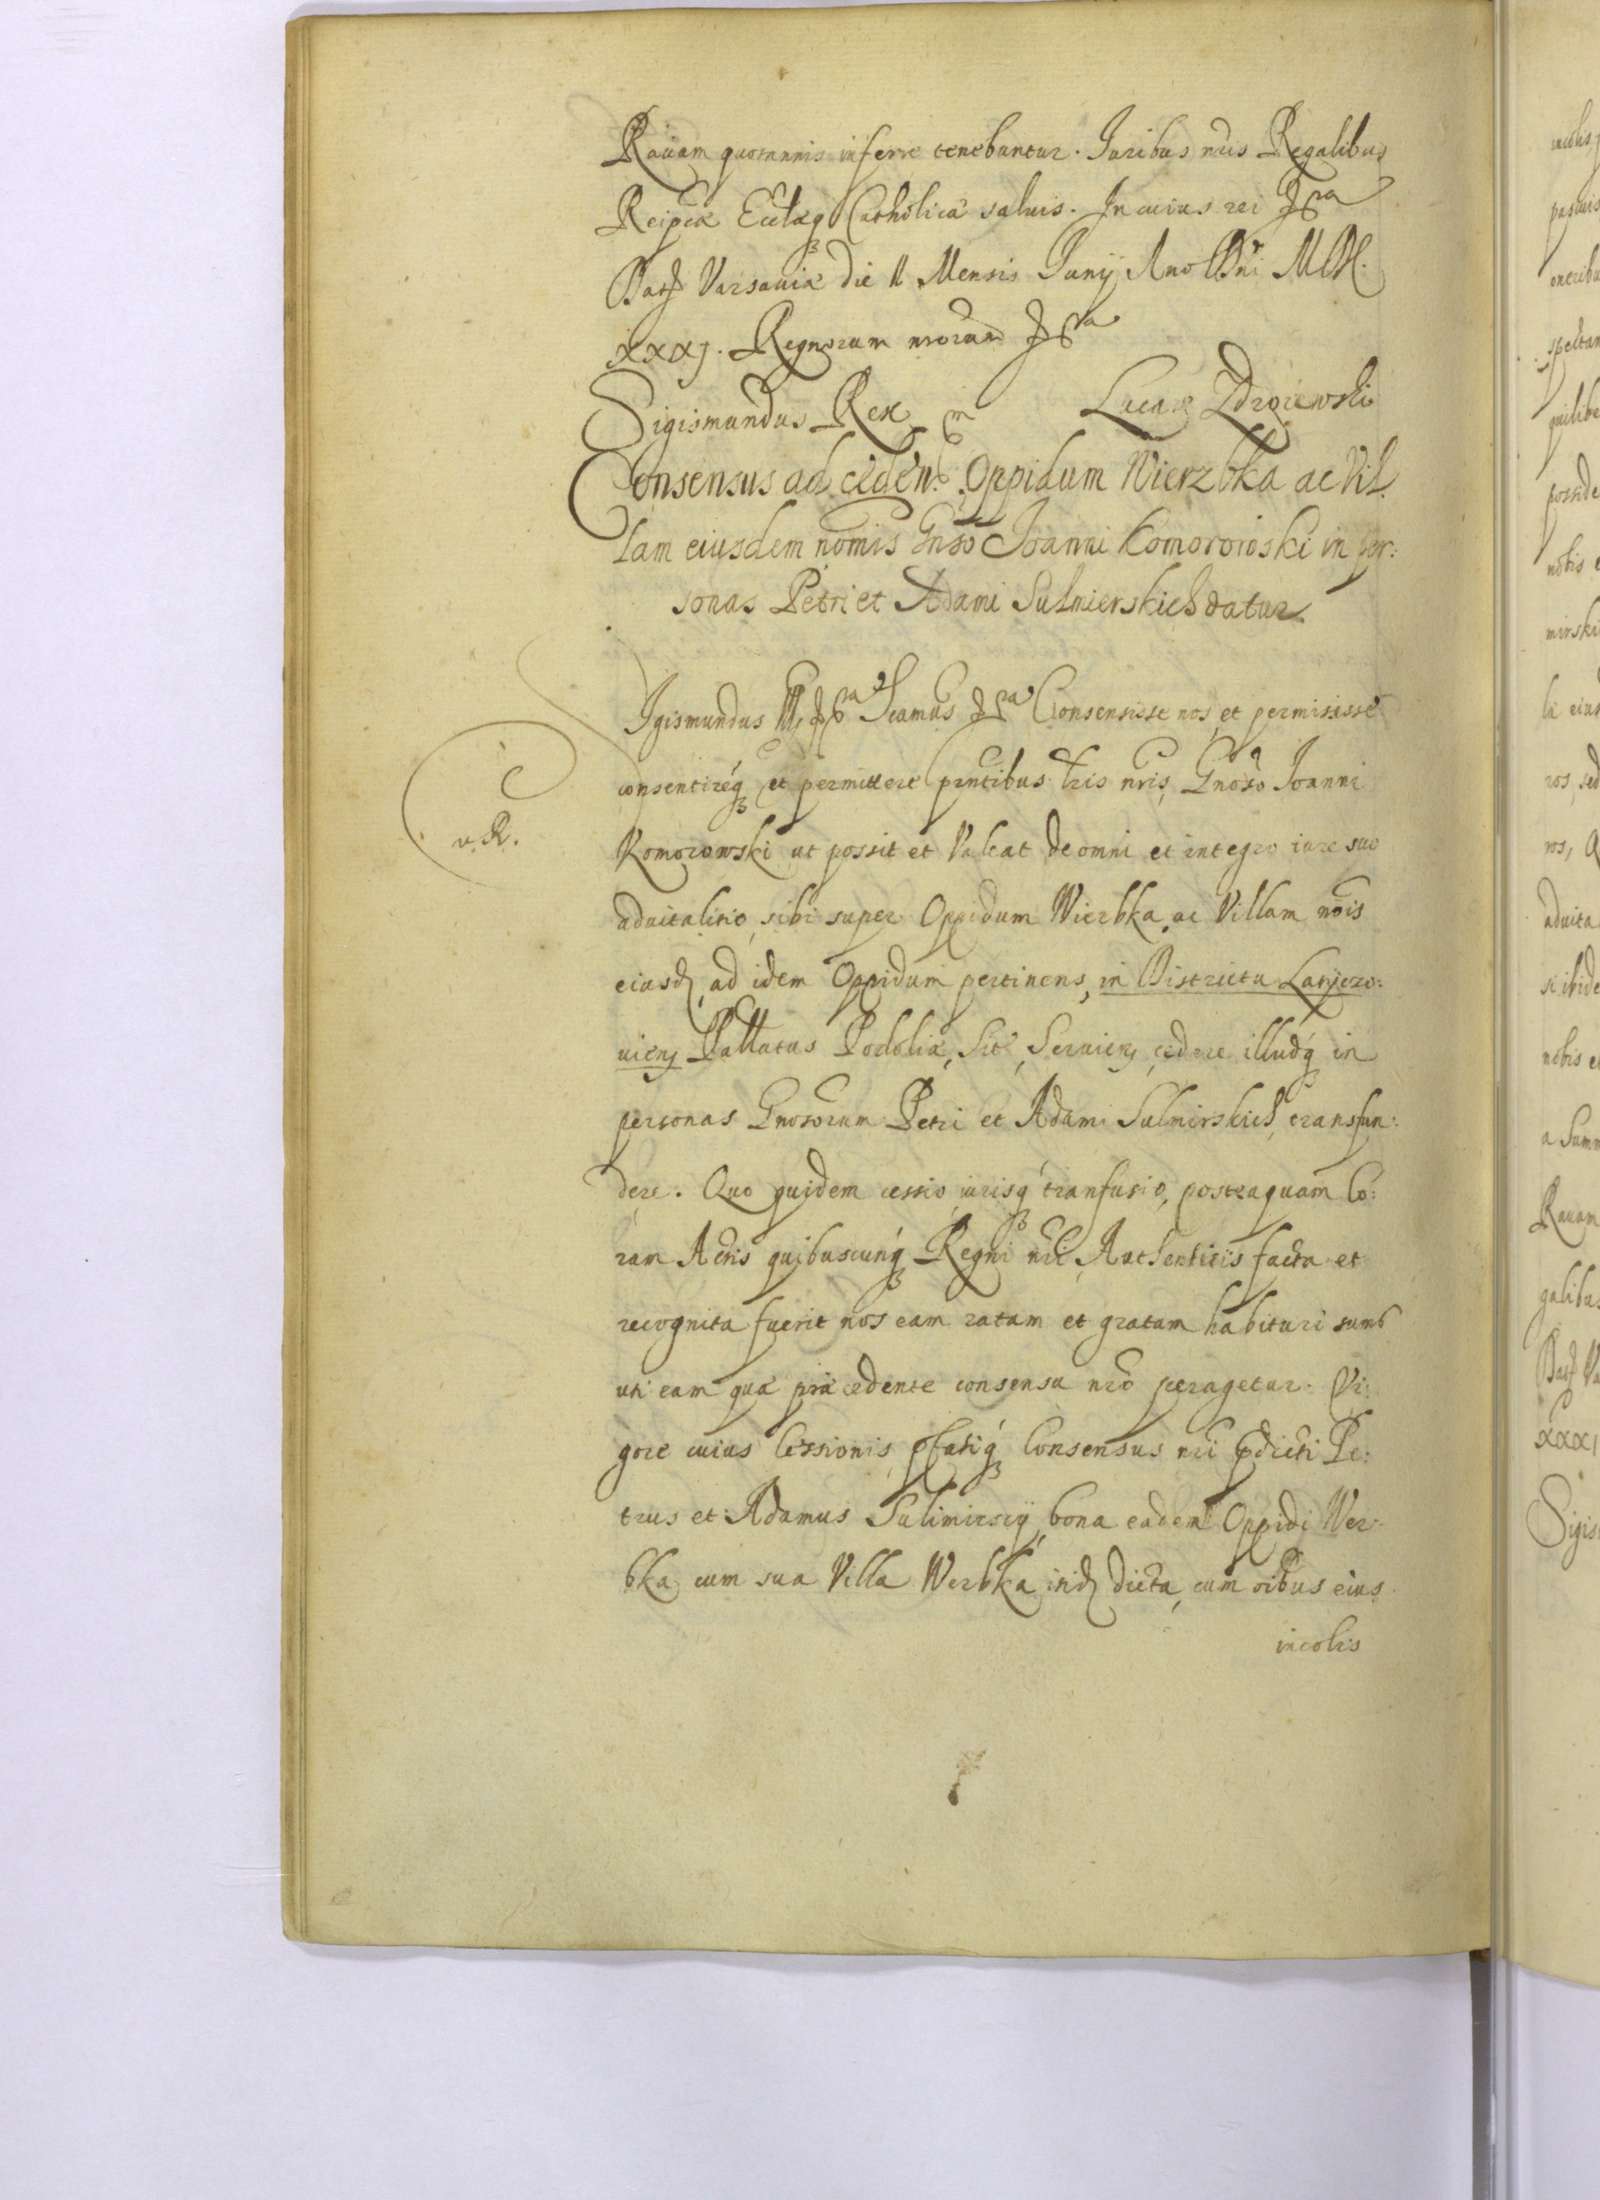 Rauam quotannis inferre tenebuntur. Iuribus nris Regalibus
Reipcæ Ecclæq Catholicæ saluis. In cuius rei &cra
Dat Varsauiæ die II Mensis Iunij Ano Dni MDC
xxxj. Regnorum nrorum &cra
Sigismundus Rex Lucas Zdrojewski
Consensus ad ceden. Oppidum Wierzbka ac Vil
lam eiusdem nomis Gnso Joanni Komorowski in per:
sonas Petri et Adami Sulmierskich datur.
Igismundus III &cra Scamus &cra Consensisse nos et permisisse
consentireq et permittere prntibus lris nris, Gnoso Joanni
Komorowski ut possit et Valeat de omni et integro iure suo
aduitalitio, sibi super Oppidum Wierbka, ac Villam nois
eiusd, ad idem Oppidum pertinens, in Districtu Latyczo:
uien Pallatus Podoliæ, Sit, Seruien, cedere illudq in
personas Gnosorum Petri et Adami Sulmirskich, transfun:
dere. Quo quidem cessio, iurisq tranfusio, posteaquam Co:
ram Actis quibuscunq Regni nri Authenticis facta et
recognita fuerit nos eam ratam et gratam habituri sum
uti eam quæ præcedente consensu nro peragetur. Vi:
gore cuius Cessionis pfatiq Consensus nri pdicti Pe:
trus et Adamus Sulimirscij, bona eadem Oppidi Wer:
bka cum sua Villa Werbka itid dicta, cum oibus eius
incolis
v. R.